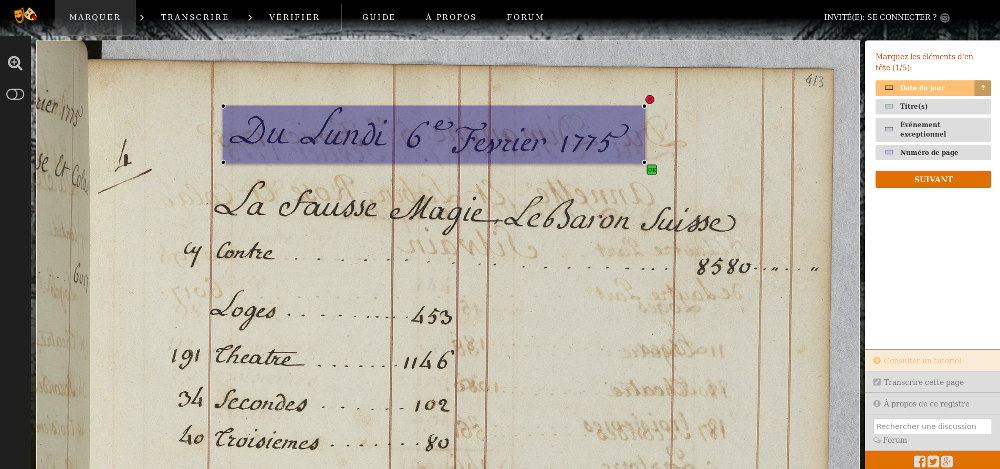 MARQUER > TRANSCRIRE > VÉRIFIER GUIDE À PROPOS FORUM INVITÉ(E): SE CONNECTER ?
413
rier 1775
Du Lundi 6e Fevrier 1775
4
La Fausse Magie Le Baron Suisse
Contre 8580 " "
Loges 453
191 Theatre 1146
34 Secondes 102
40 Troisiemes 80
Marquez les éléments d'en-
tête (1/5):
Date du jour ?
Titre(s)
Evénement
exceptionnel
Numéro de page
SUIVANT
Consulter un tutoriel
Transcrire cette page
À propos de ce registre
Rechercher une discussion
Forum
OK